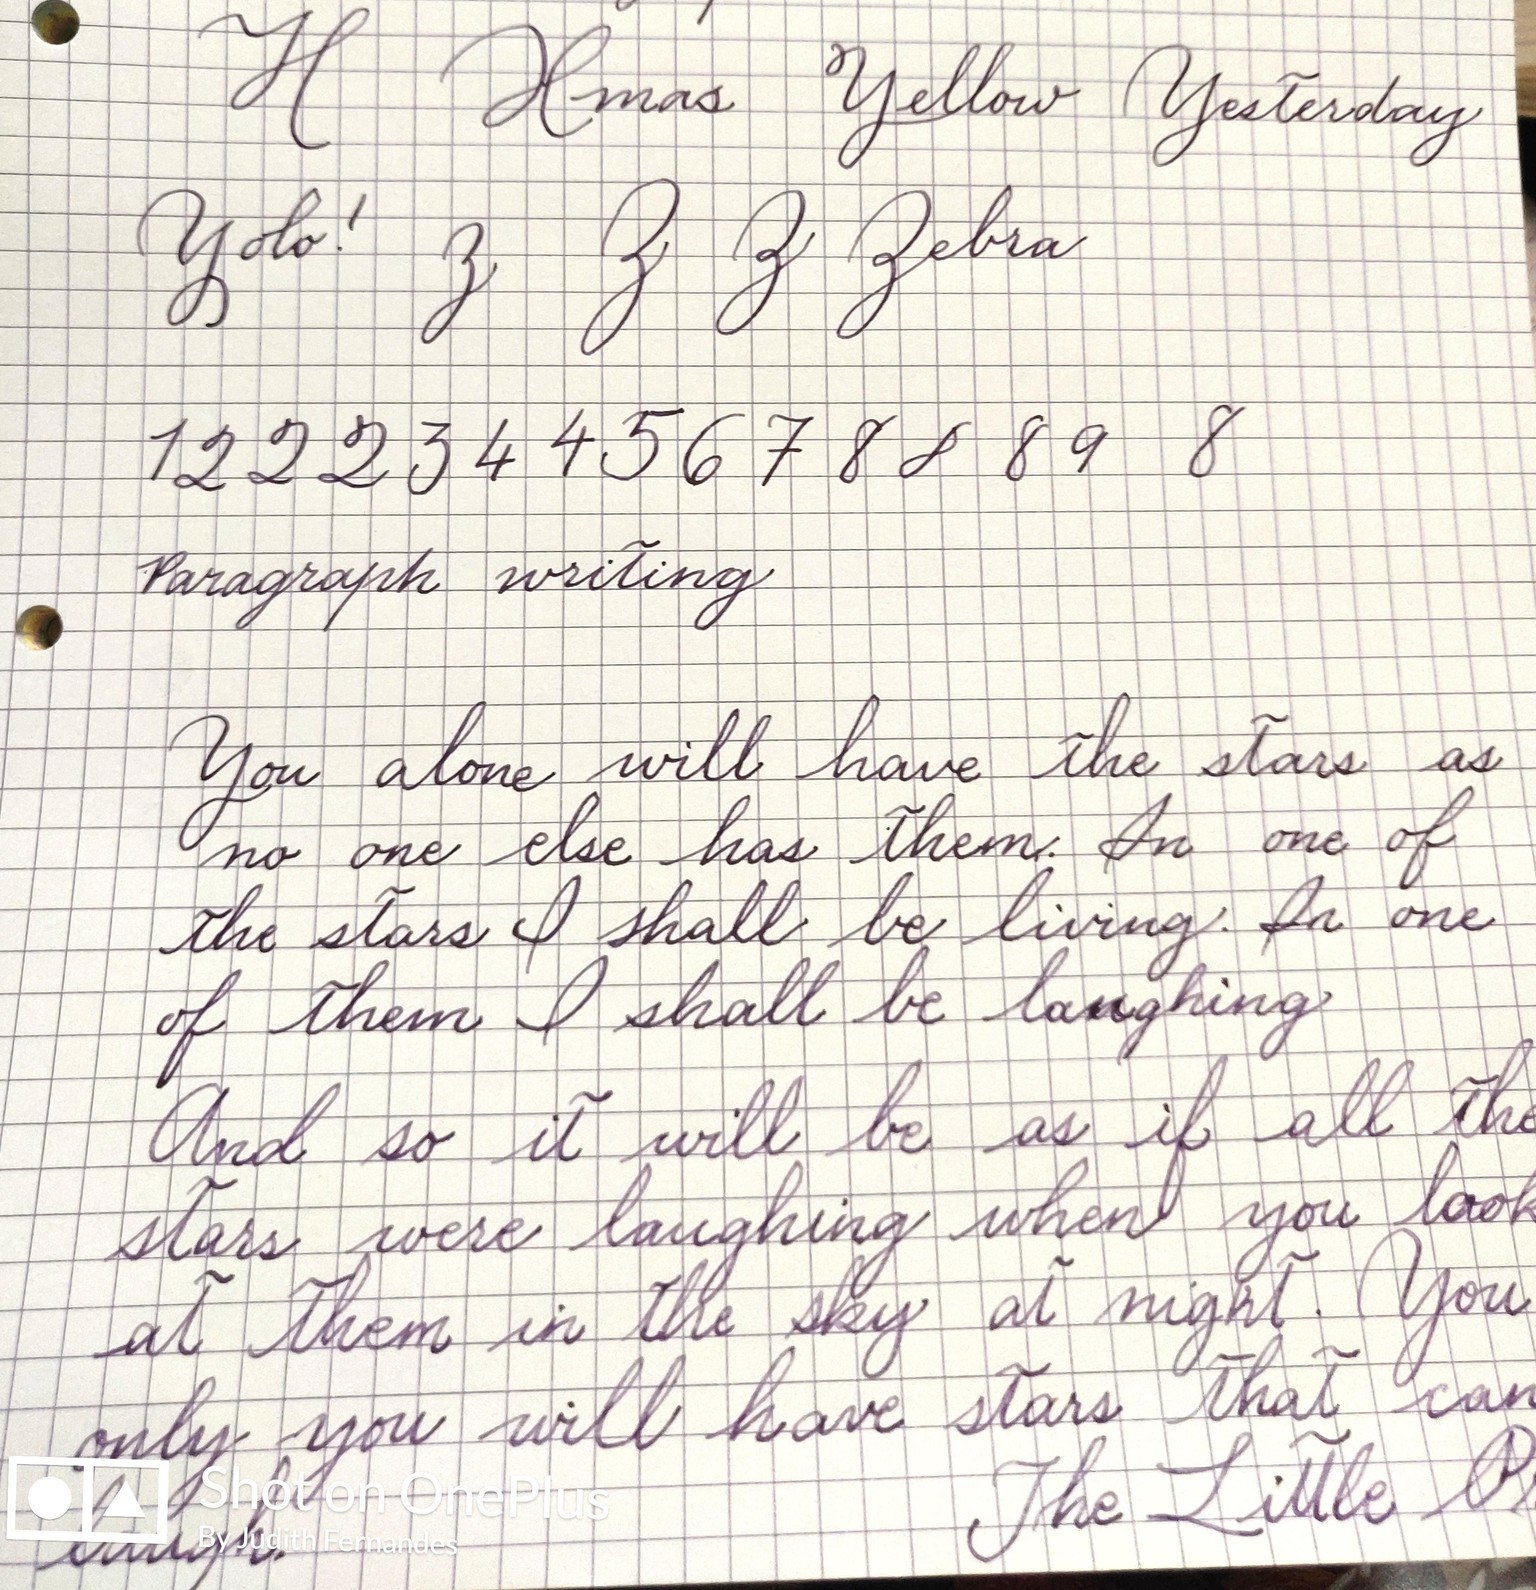 H Xmas Yellow Yesterday
Yolo! z Z Z Zebra
1 2 2 2 3 4 4 5 6 7 8 8 8 9 8
Paragraph writing
You alone will have the stars as
no one else has them. In one of
the stars I shall be living. In one
of them I shall be laughing
And so it will be as if all the
stars were laughing when you look
at them in the sky at night. You
only you will have stars that can
laugh.
The Little Pr
Shot on OnePlus
By Judith Fernandes